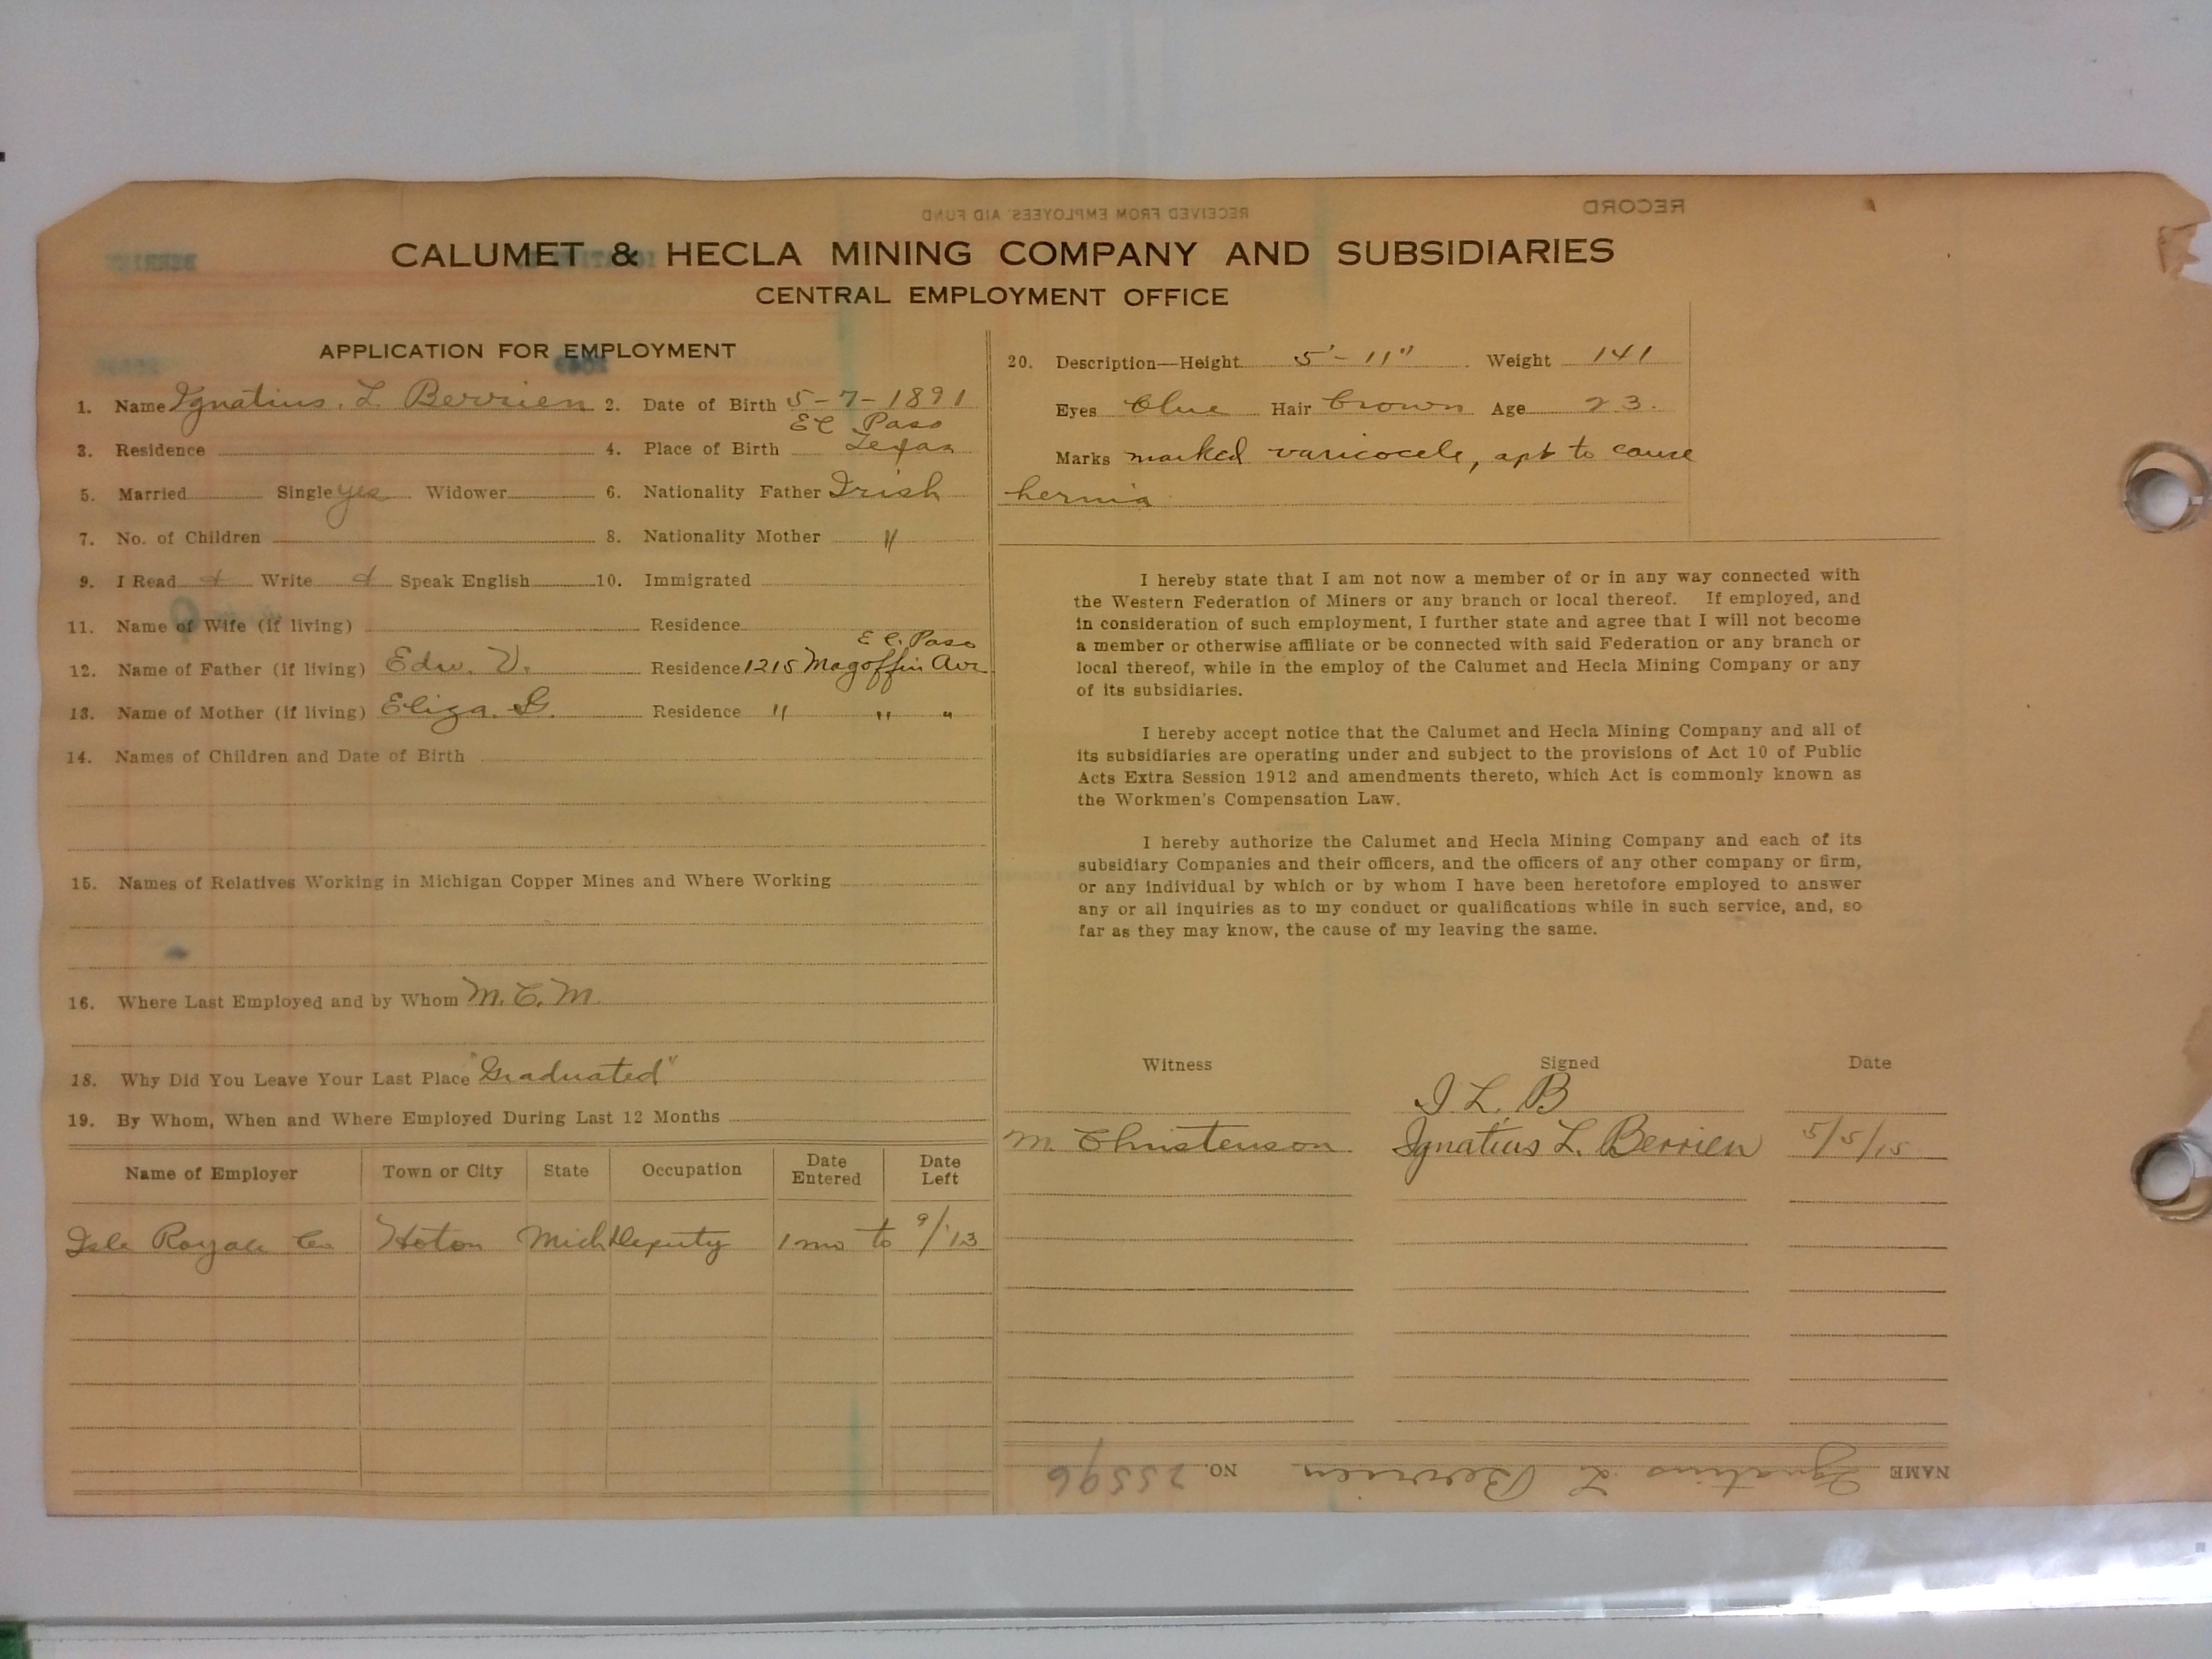 RECORD
RECEIVED FROM EMPLOYEES' AID FUND
CALUMET & HECLA MINING COMPANY AND SUBSIDIARIES
CENTRAL EMPLOYMENT OFFICE
APPLICATION FOR EMPLOYMENT
1. Name Ignatius. L. Berrien 2. Date of Birth 5-7-1891
El Paso
3. Residence 4. Place of Birth Texas
5. Married Single yes Widower 6. Nationality Father Irish
7. No. of Children 8. Nationality Mother "
9. I Read & Write & Speak English 10. Immigrated
11. Name of Wife (if living) Residence
El. Paso
12. Name of Father (if living) Edw. V. Residence 1215 Magoffin Ave
13. Name of Mother (if living) Eliza. G. Residence " " "
14. Names of Children and Date of Birth
15. Names of Relatives Working in Michigan Copper Mines and Where Working
16. Where Last Employed and by Whom M.C.M.
18. Why Did You Leave Your Last Place "Graduated"
19. By Whom, When and Where Employed During Last 12 Months
Name of Employer Town or City State Occupation Date Entered Date Left
Isle Royale Co Hoton Mich Deputy 1 mo to 9/'13
20. Description—Height 5'-11" Weight 141
Eyes blue Hair brown Age 23.
Marks marked varicocele, apt to cause
hernia
I hereby state that I am not now a member of or in any way connected with
the Western Federation of Miners or any branch or local thereof. If employed, and
in consideration of such employment, I further state and agree that I will not become
a member or otherwise affiliate or be connected with said Federation or any branch or
local thereof, while in the employ of the Calumet and Hecla Mining Company or any
of its subsidiaries.
I hereby accept notice that the Calumet and Hecla Mining Company and all of
its subsidiaries are operating under and subject to the provisions of Act 10 of Public
Acts Extra Session 1912 and amendments thereto, which Act is commonly known as
the Workmen's Compensation Law.
I hereby authorize the Calumet and Hecla Mining Company and each of its
subsidiary Companies and their officers, and the officers of any other company or firm,
or any individual by which or by whom I have been heretofore employed to answer
any or all inquiries as to my conduct or qualifications while in such service, and, so
far as they may know, the cause of my leaving the same.
Witness Signed Date
I L. B
M. Christenson Ignatius L. Berrien 5/5/15
NAME Ignatius L Berrien NO. 25596